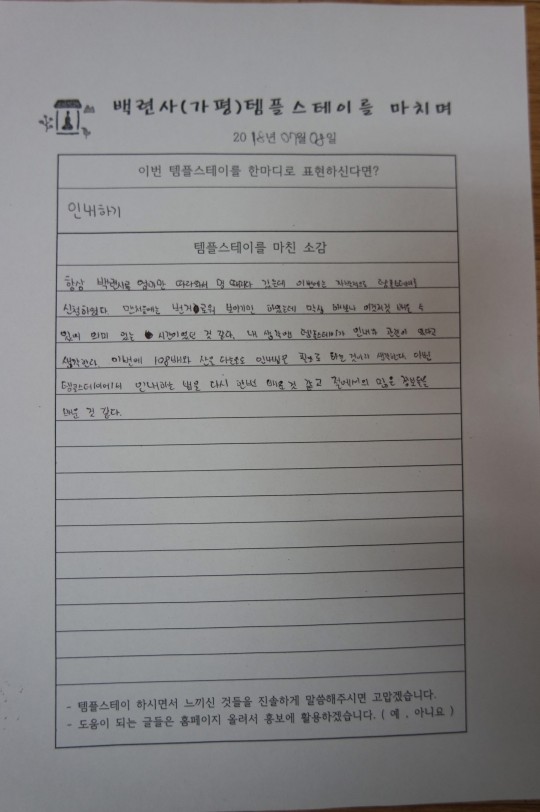 백련사(가평)템플스테이를 마치며
2018년 07월 08일
이번 템플스테이를 한마디로 표현하신다면?
인내하기
템플스테이를 마친 소감
항상 백련사를 엄마만 따라와서 갔는데 이번에는 템플스테이를
신청하였다. 보이기만 하였는데 막상 해보니 이것저것 배울 수
있어 의미 있는 시간이었던 것 같다. 내 생각엔 템플스테이가 인내와 관련이 있다고
생각한다. 이번에 108배와 산을 인내심을 필요로 하는 것이라 생각한다. 이번
템플스테이에서 인내하는 법을 다시 한번 배운 것 같고 절에서의 많은 것들을
배운 것 같다.
- 템플스테이 하시면서 느끼신 것들을 진솔하게 말씀해주시면 고맙겠습니다.
- 도움이 되는 글들은 홈페이지 올려서 홍보에 활용하겠습니다. ( 예 , 아니요 )